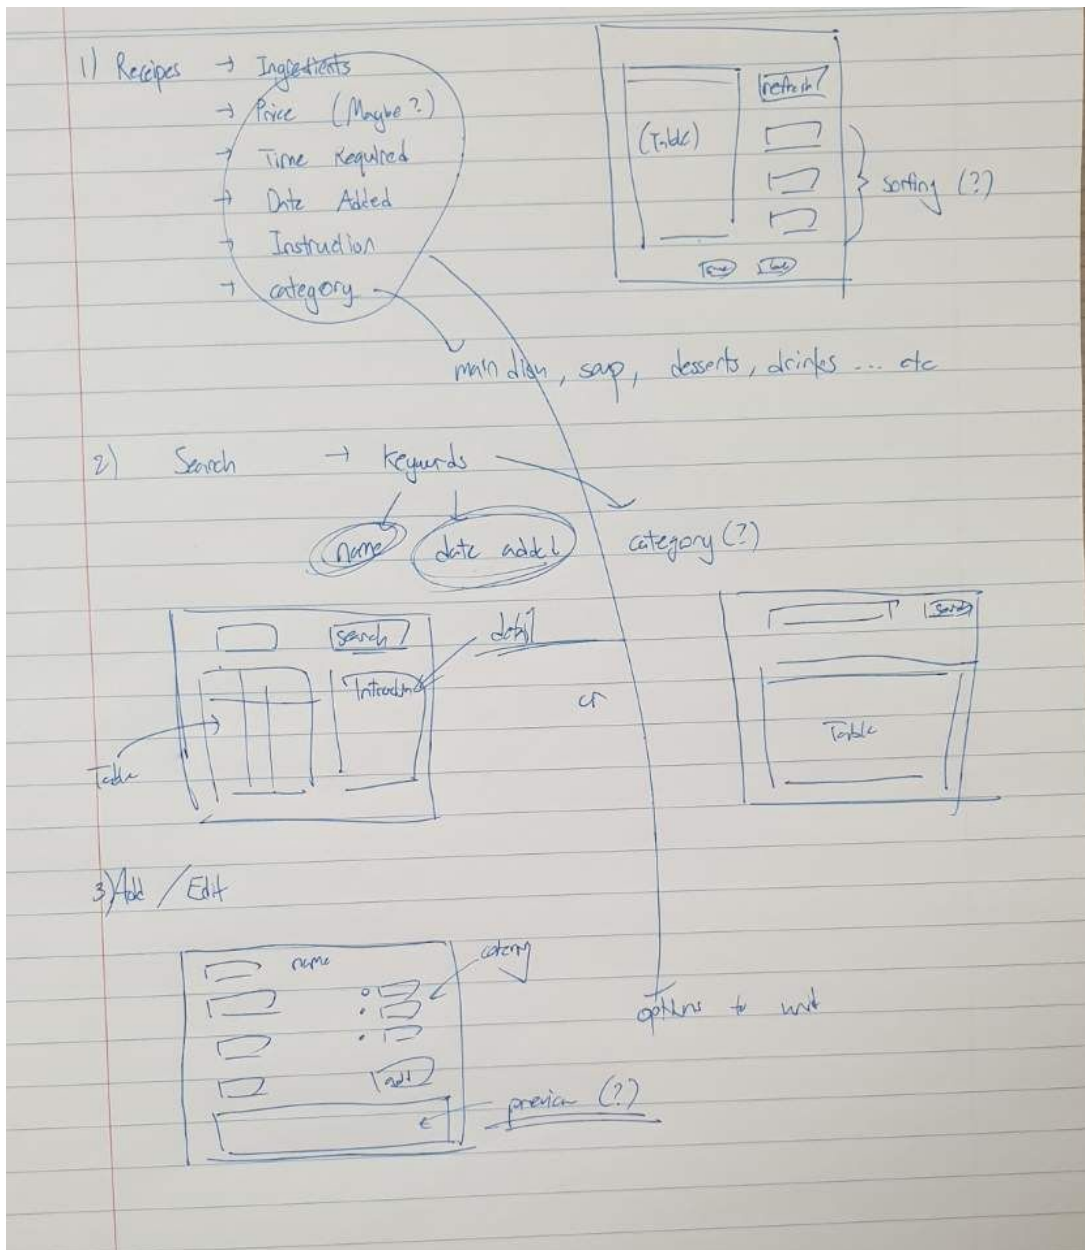 1) Receipes → Ingredients
→ Price (Maybe?)
→ Time Required
→ Date Added
→ Instruction
→ category
refresh
(Table)
sorting (?)
main dish, soup, desserts, drinks ... etc
2) Search → Keywords
name
date added
category (?)
search
detail
Table
or
Search
Table
3) Add / Edit
name
add
options to
preview (?)